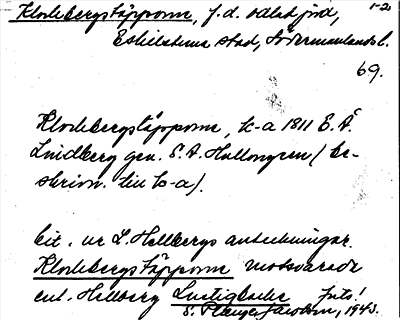 Klockbergstäpporna, f.d. odlad jord, 1-2
Eskilstuna stad, Södermanlands l.
69.
Klockbergstäpporna, k-a 1811 E. Å.
Lindberg gen. E. A. Hallongren (be-
skrivn. till k-a).
Cit. ur L. Hellbergs anteckningar.
Klockbergstäpporna motsvarade
enl. Hellberg Lustigbacke foto!
1943.